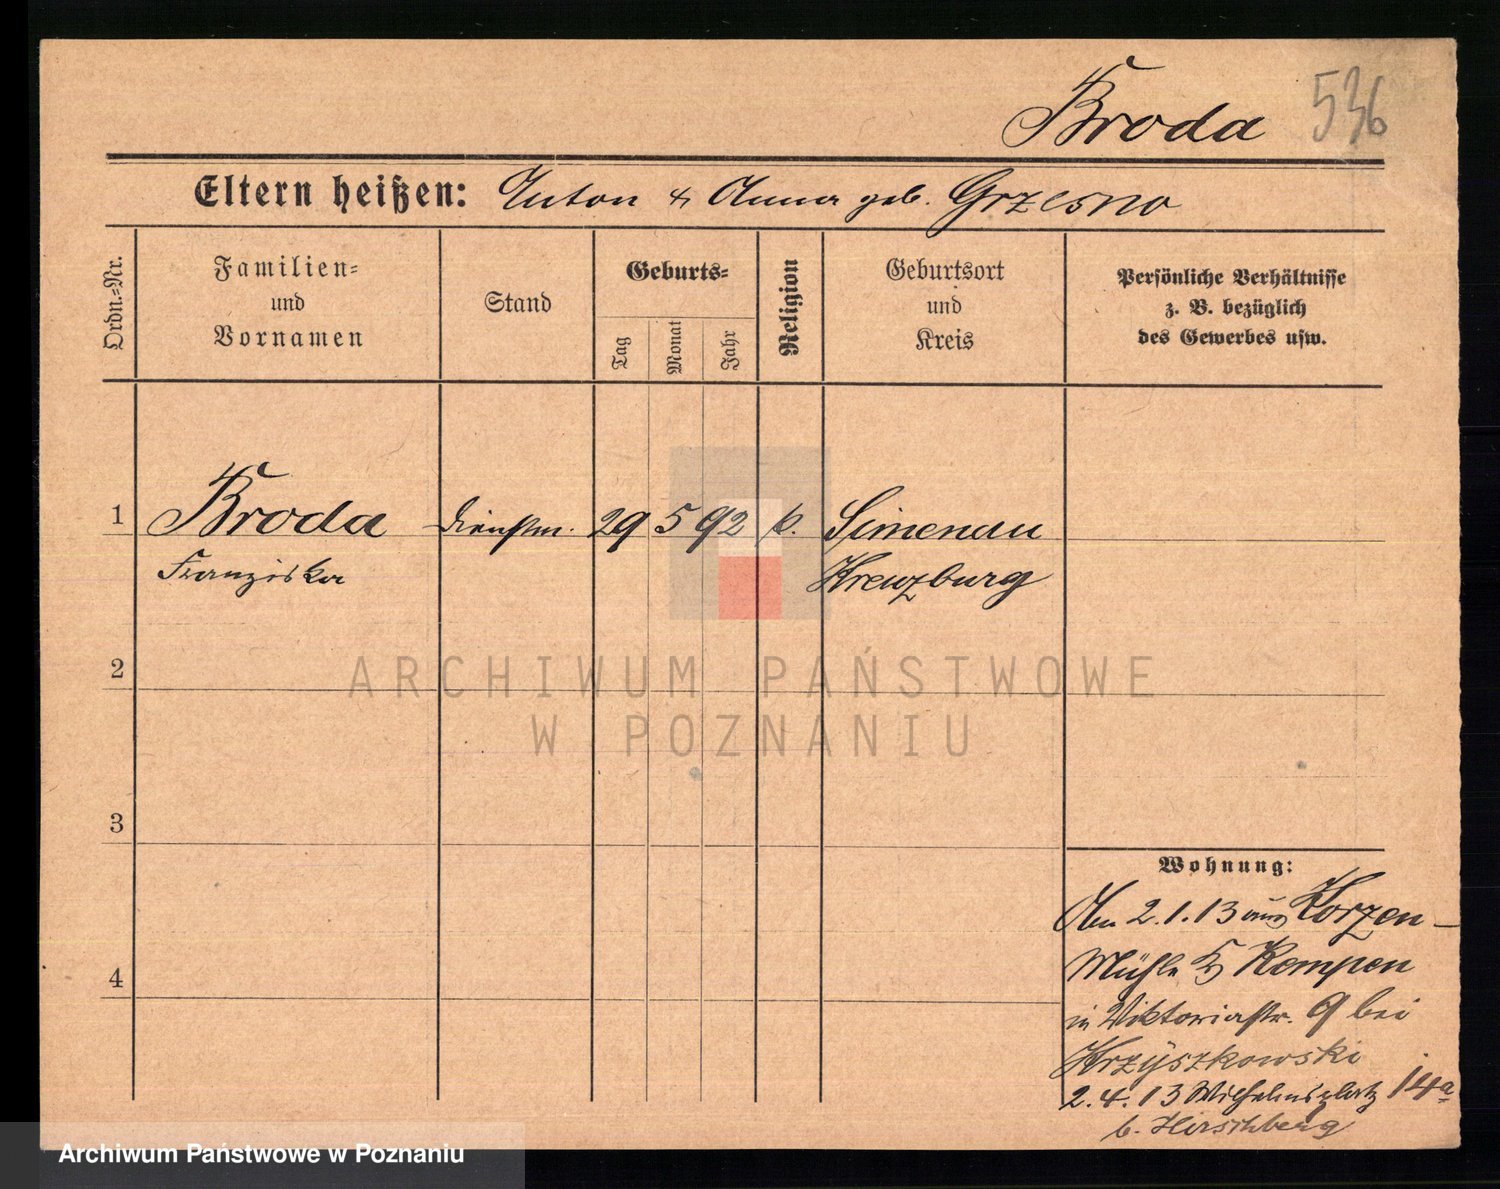 Broda 536
Eltern heißen: Anton & Anna geb. Grzesno
Ordn.-Nr.
Familien-
und
Vornamen
Stand
Geburts-
Tag
Monat
Jahr
Religion
Geburtsort
und
Kreis
Persönliche Verhältnisse
z. B. bezüglich
des Gewerbes usw.
1 Broda Dienstm. 29 5 92 k. Simenau
Franziska Kreuzburg
2
3
4
Wohnung:
Am 2.1.13 aus Korzen-
Mühle Kempen
in Viktoriastr. 9 bei
Krzyszkowski
2.4.13 Wilhelmsplatz 14a
b. Hirschberg
ARCHIWUM PAŃSTWOWE
W POZNANIU
Archiwum Państwowe w Poznaniu